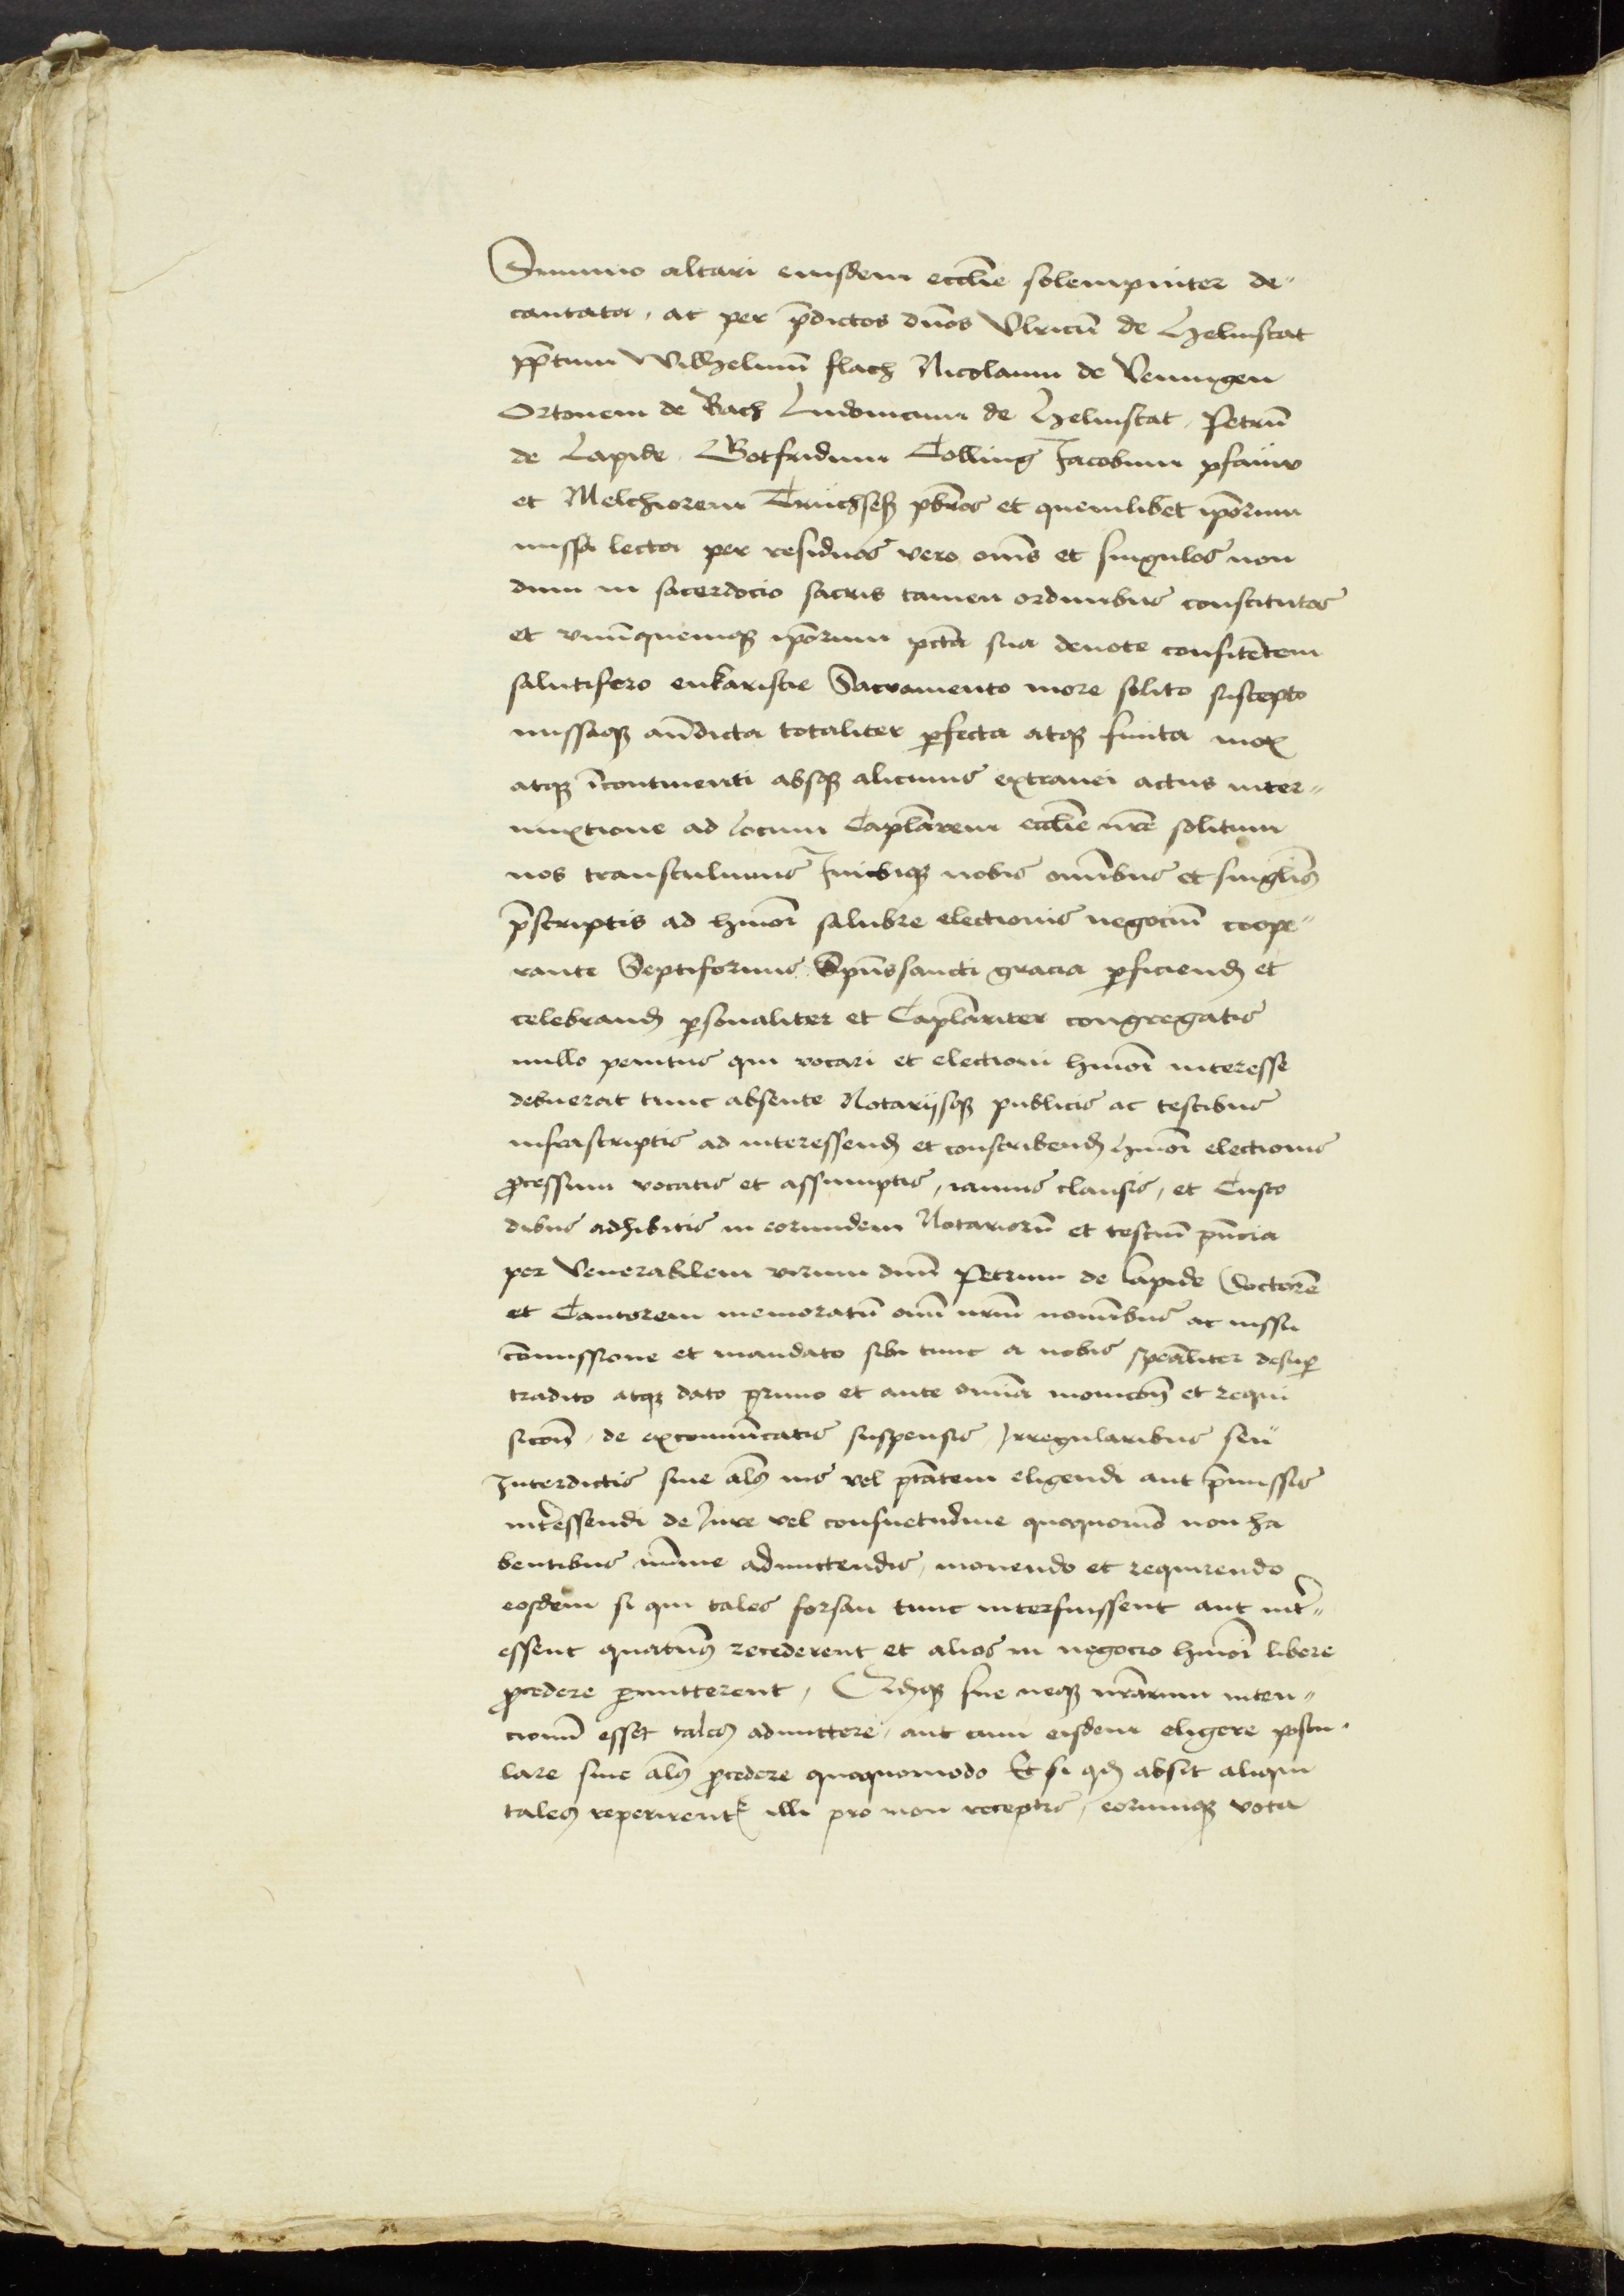 Summo altari eiusdem eccl̄ie solempniter de-
cantata, ac per p̄dictos dn̄os Vlricū de Helmstat
pp̄tum Wilhelmū flach Nicolaum de Veningen
Ottonem de Bach Ludouicum de Helmstat, Petrū
de Lapide Gotfridum Colling Jacobum pfaüw
et Melchiorem Trüchseß pb̄ros et quemlibet ip̄orum
missa lecta per residuos vero om̄s et singulos non
dum in sacerdocio sacris tamen ordinibus constitutos
et vnūquemqꝫ ip̄orum pctā sua deuote confitētem
salutifero eukaristie Sacramento more solito suscepto
missaqꝫ an̄dicta totaliter ꝑfecta atqꝫ finita mox
atqꝫ īcontinenti absqꝫ alicuius extranei actus inter-
mixtione ad locum Caplārem eccl̄ie nr̄e solitum
nos transtulimus Inibiqꝫ nobis om̄ibus et singlis
p̄scriptis ad hmōi salubre electionis negociū coope-
rante Septiformis Sp̄ussancti gracia ꝑficiend et
celebrand ꝑsonaliter et Caplāriter congregatis
nullo penitus qui vocari et electioni hmōi interesse
debuerat tunc absente Notarijsqꝫ publicis ac testibus
infrascriptis ad interessend et conscribend hmōi electionis
ꝓcessum vocatis et assumptis, ianuis clausis, et Custo
dibus adhibitis in eorundem Notariorū et testiū pn̄cia
per Venerabilem virum dn̄m Petrum de lapide Doctorē
et Cantorem memoratū om̄i nr̄m nom̄ibus ac iussu
cōmissione et mandato sibi tunc a nobis specāliter desuꝑ
tradito atqꝫ dato primo et ante om̄ia monicōn et requi
sicōn, de excommūicatis suspensis, Irregularibus seü
Interdictis siue al̄s ius vel ptātem eligendi aut p̄missis
int̄essendi de Jure vel consuetudine quoquomō non ha
bentibus mīme admittendis, monendo et requirendo
eosdem si qui tales forsan tunc interfuissent aut int̄-
essent quaten̄s recederent et alios in negocio hmōi libere
ꝓcedere ꝑmitterent, Qdqꝫ sue neqꝫ nr̄arum inten-
cionū esset tales admittere, aut cum eisdem eligere postu-
lare siue al̄s ꝓcedere quoquomodo Et si qd absit aliqui
tales reperirent̄ illi pro non receptis, eorumqꝫ vota